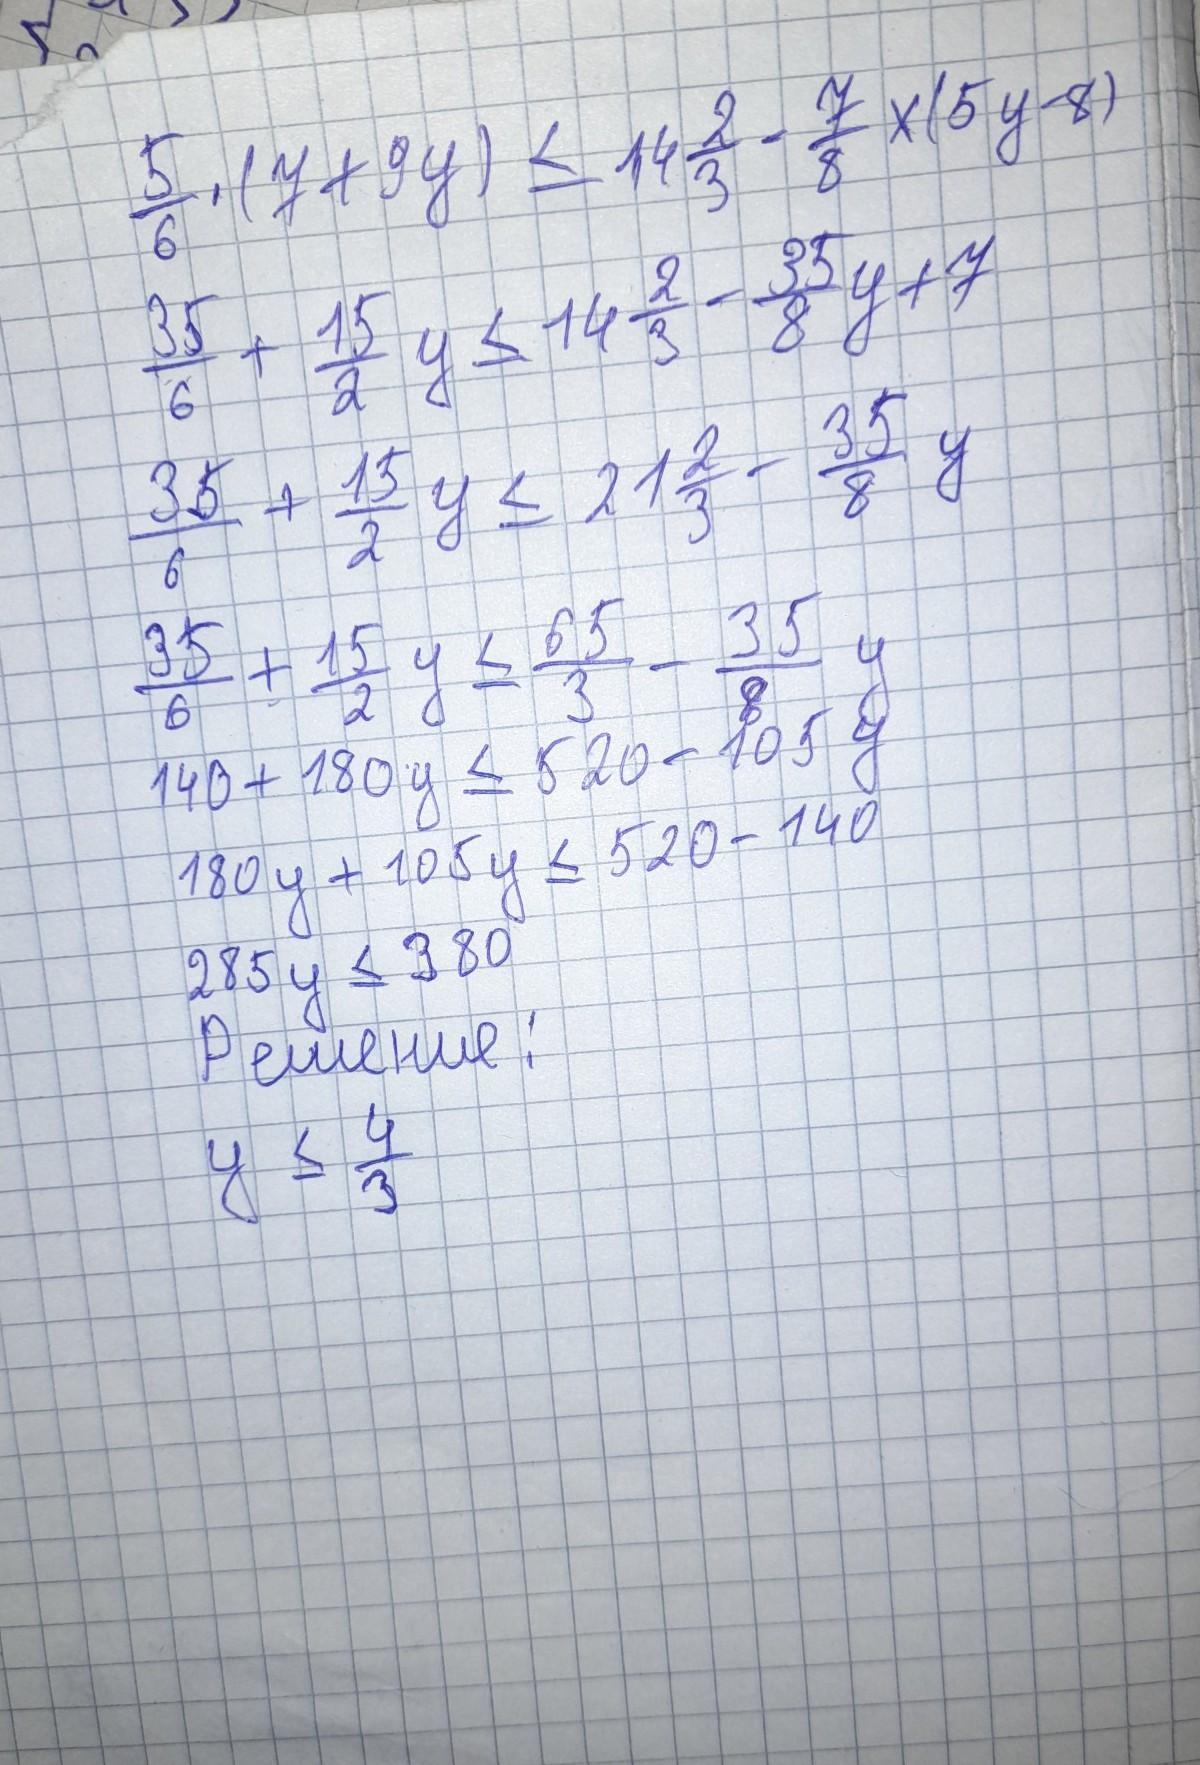 5/6 · (7 + 9y) ≤ 14 2/3 - 7/8 × (5y - 8)
35/6 + 15/2 y ≤ 14 2/3 - 35/8 y + 7
35/6 + 15/2 y ≤ 21 2/3 - 35/8 y
35/6 + 15/2 y ≤ 65/3 - 35/8 y
140 + 180y ≤ 520 - 105y
180y + 105y ≤ 520 - 140
285y ≤ 380
Решение:
y ≤ 4/3